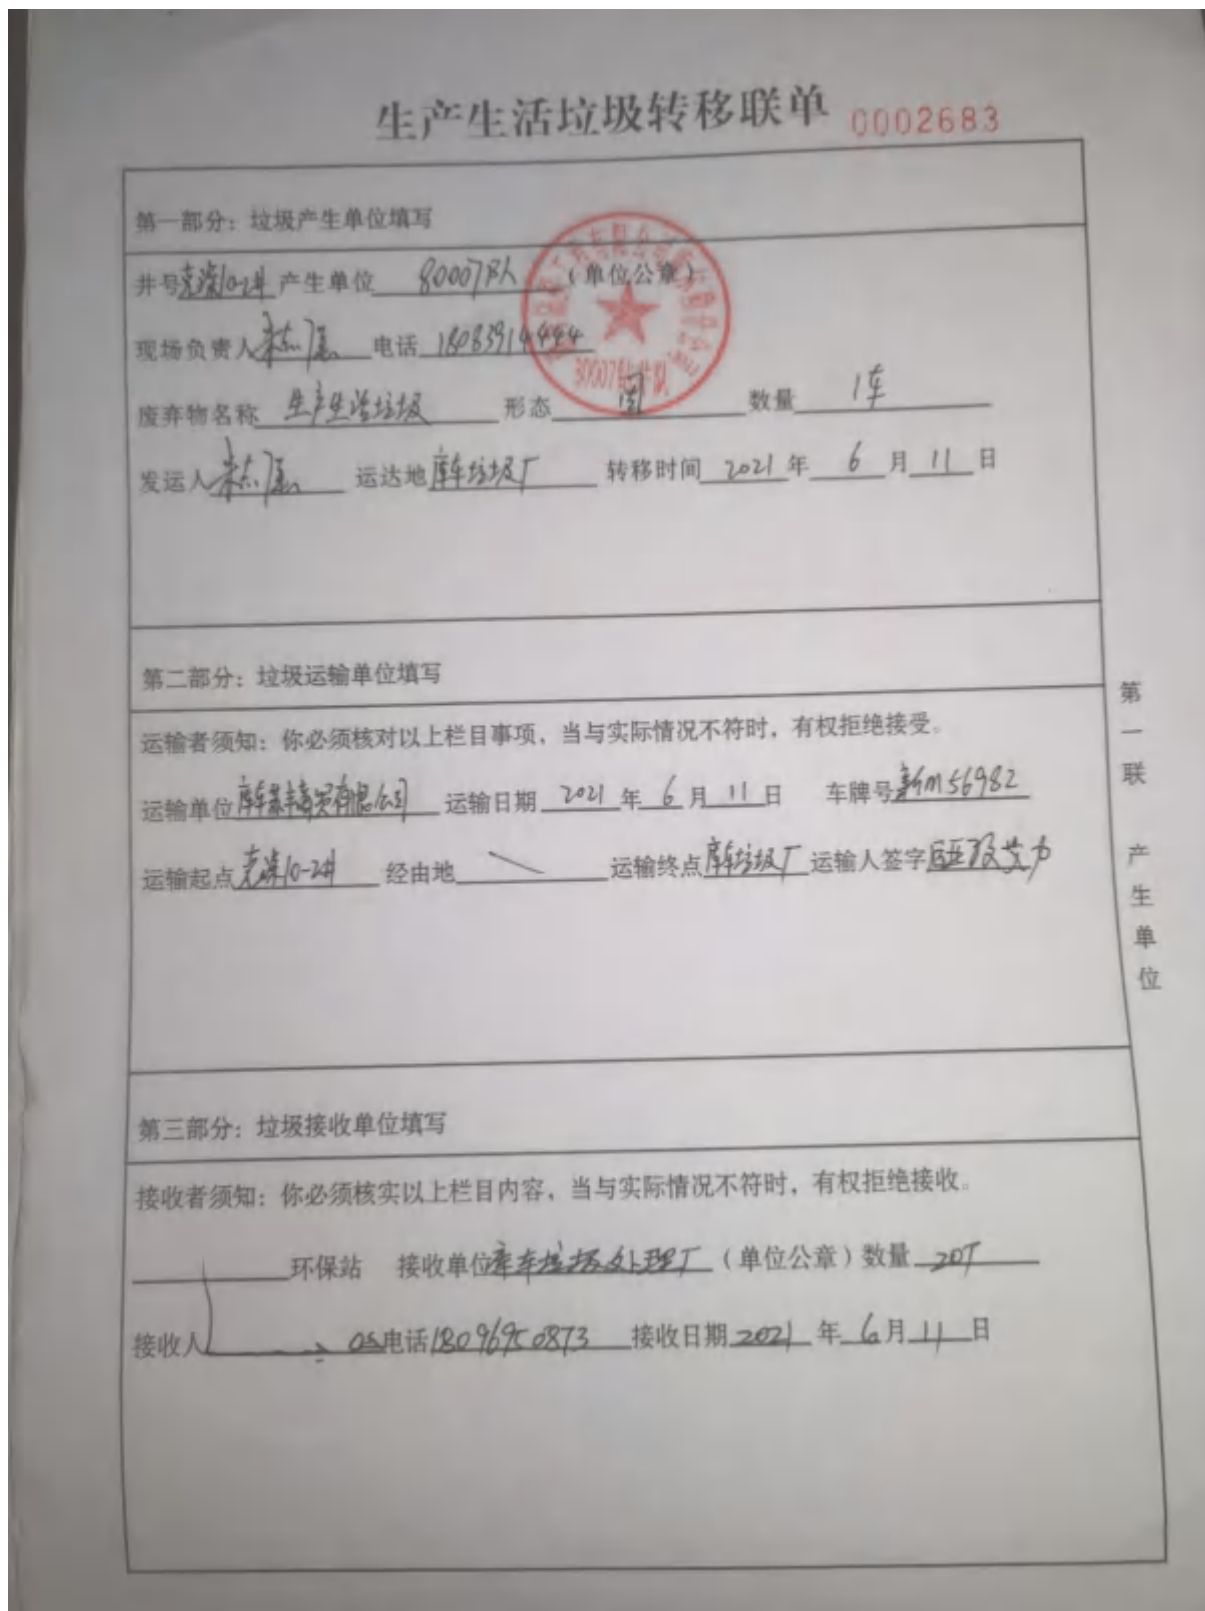 生产生活垃圾转移联单 0002683
第一部分：垃圾产生单位填写
井号克深10-2井 产生单位 80007队 （单位公章）
现场负责人 电话 18083914444
废弃物名称 生产生活垃圾 形态 固 数量 1车
发运人 运达地 库车垃圾厂 转移时间 2021 年 6 月 11 日
第二部分：垃圾运输单位填写
运输者须知：你必须核对以上栏目事项，当与实际情况不符时，有权拒绝接受。
运输单位 库车 商贸有限公司 运输日期 2021 年 6 月 11 日 车牌号 新M56982
运输起点 克深10-2井 经由地 运输终点 库车垃圾厂 运输人签字
第三部分：垃圾接收单位填写
接收者须知：你必须核实以上栏目内容，当与实际情况不符时，有权拒绝接收。
环保站 接收单位 库车垃圾处理厂 （单位公章）数量 20T
接收人 电话 18096950873 接收日期 2021 年 6 月 11 日
第一联 产生单位